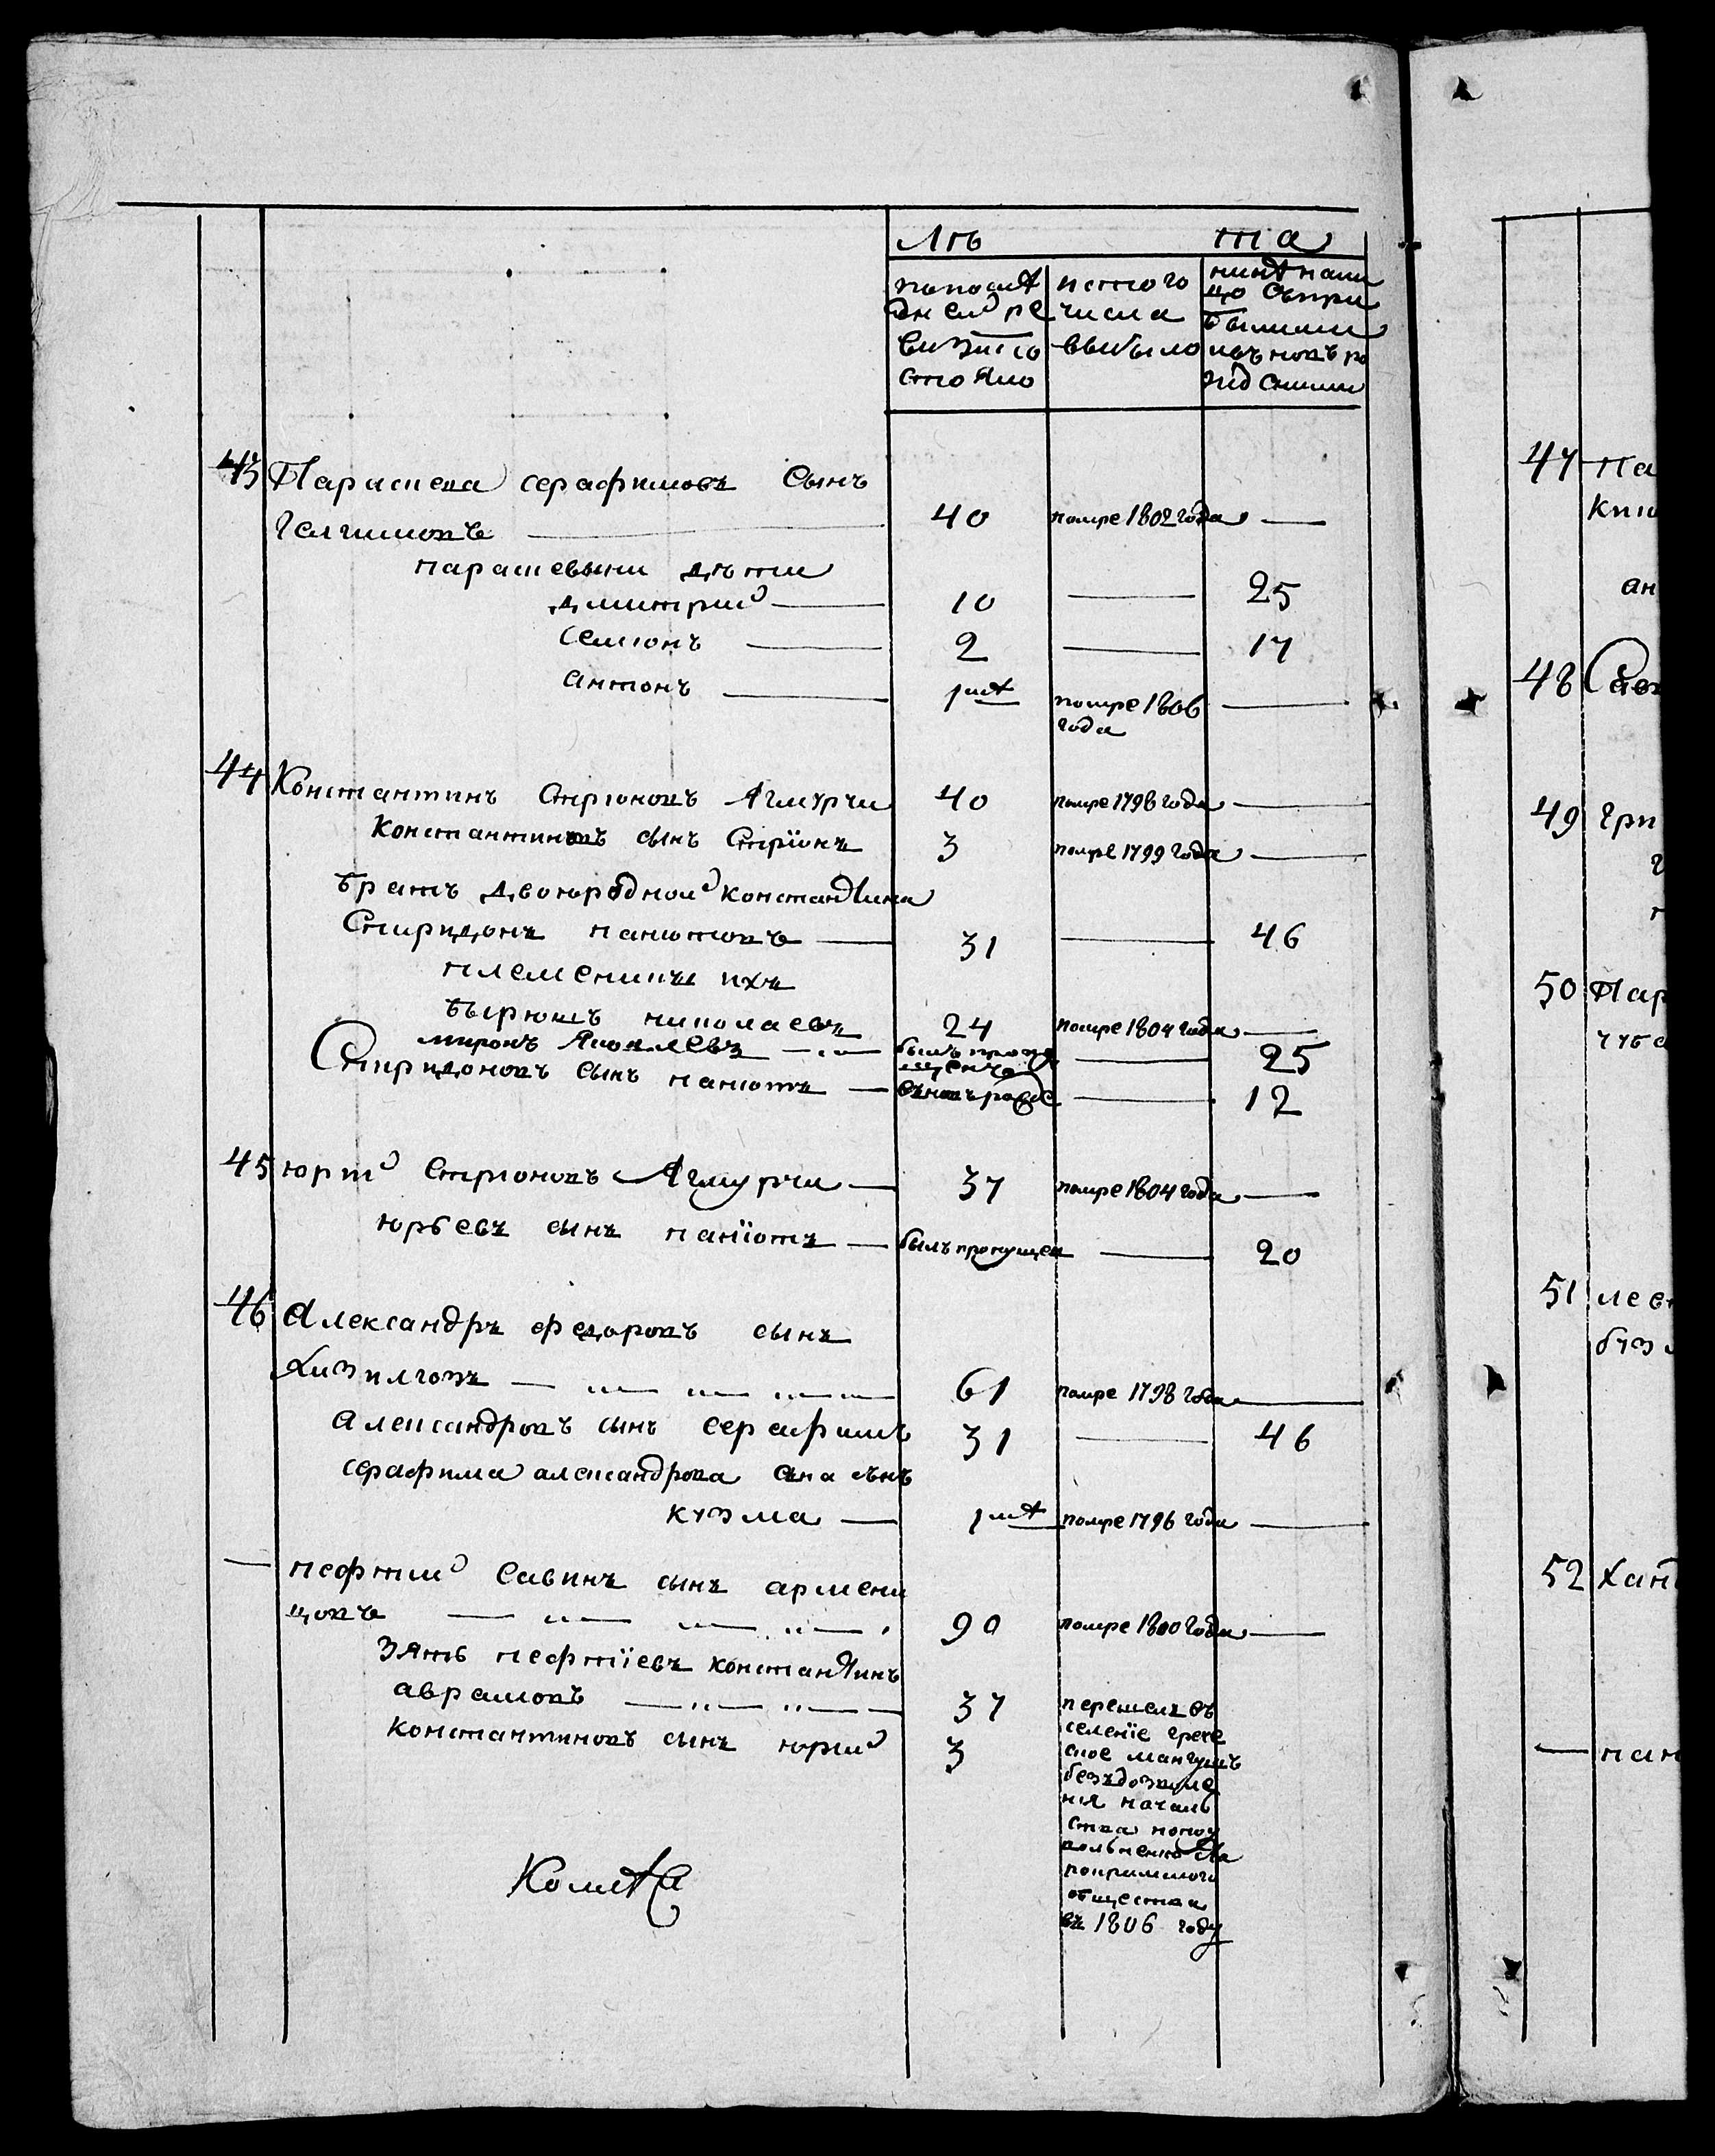 Лѣ та
попослѣ
дней ре
визiи со
стояло
истого
числа
выбыло
нынѣ нали
цо съпри
былыми
ивъновь ро
жд енными
43 Параскева серафимовъ Сынъ
40 помре 1802 года —
параскевыны дѣти
дмитрий — 10 — 25
семионъ — 2 — 17
антонъ — 1 лѣт помре 1806 года —
44 Константинъ Стрионовъ Агмурчи 40 помре 1798 года —
Константиновъ сынъ Стрiонъ 3 помре 1799 года —
братъ двоюродной константина
Спиридонъ панiотовъ — 31 — 46
племенники ихъ
бырюкъ николаевъ 24 помре 1804 года —
миронъ Яковлевъ — былъ пропущенъ — 25
Спиридоновъ сынъ панiотъ — въновь рожде — 12
45 юрий Стрионовъ Агмурчи — 37 помре 1804 года —
юрьевъ сынъ панiотъ — былъ пропущен — 20
46 Александръ федоровъ сынъ
61 помре 1798 года —
Александровъ сынъ серафимъ 31 — 46
серафима александрова сына сынъ
кузма — 1 лѣт помре 1796 года —
— пефтий Савинъ сынъ армени
цовъ — 90 помре 1800 года —
зять пефтiевъ константинъ
аврамовъ — 37
константиновъ сынъ юрий 3
перешелъ въ
селенiе грече
ское мангушъ
безъдозволе
нiя началь
ства
общества
въ 1806 году
47 Па
48
49 гри
50 Пар
51
52 Хан
— пан